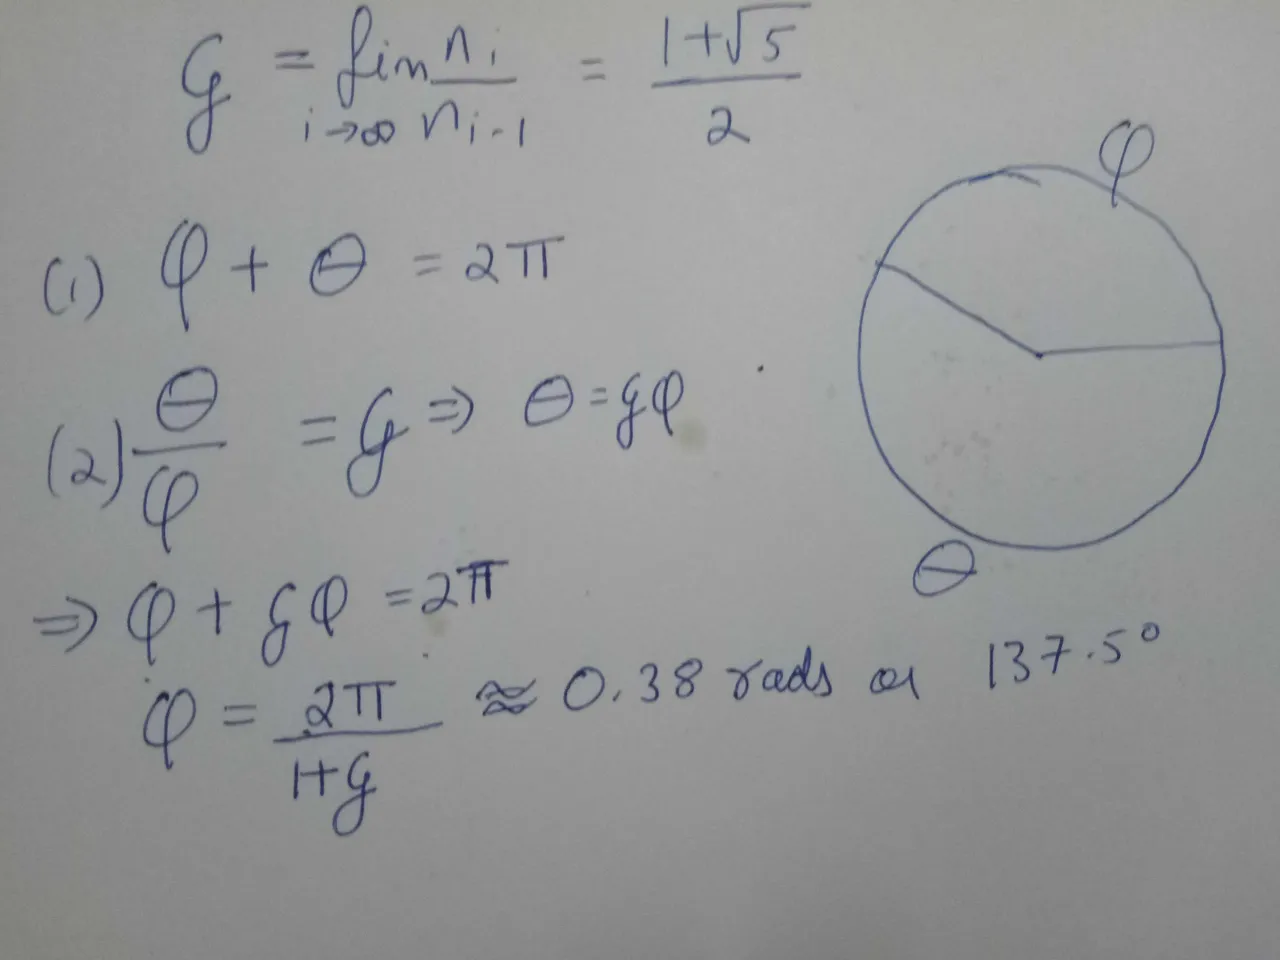 G = lim i→∞ nᵢ/nᵢ₋₁ = (1+√5)/2
φ
(1) φ + θ = 2π
(2) θ/φ = G ⇒ θ = gφ
θ
⇒ φ + gφ = 2π
φ = 2π/(1+g) ≈ 0.38 rads or 137.5°